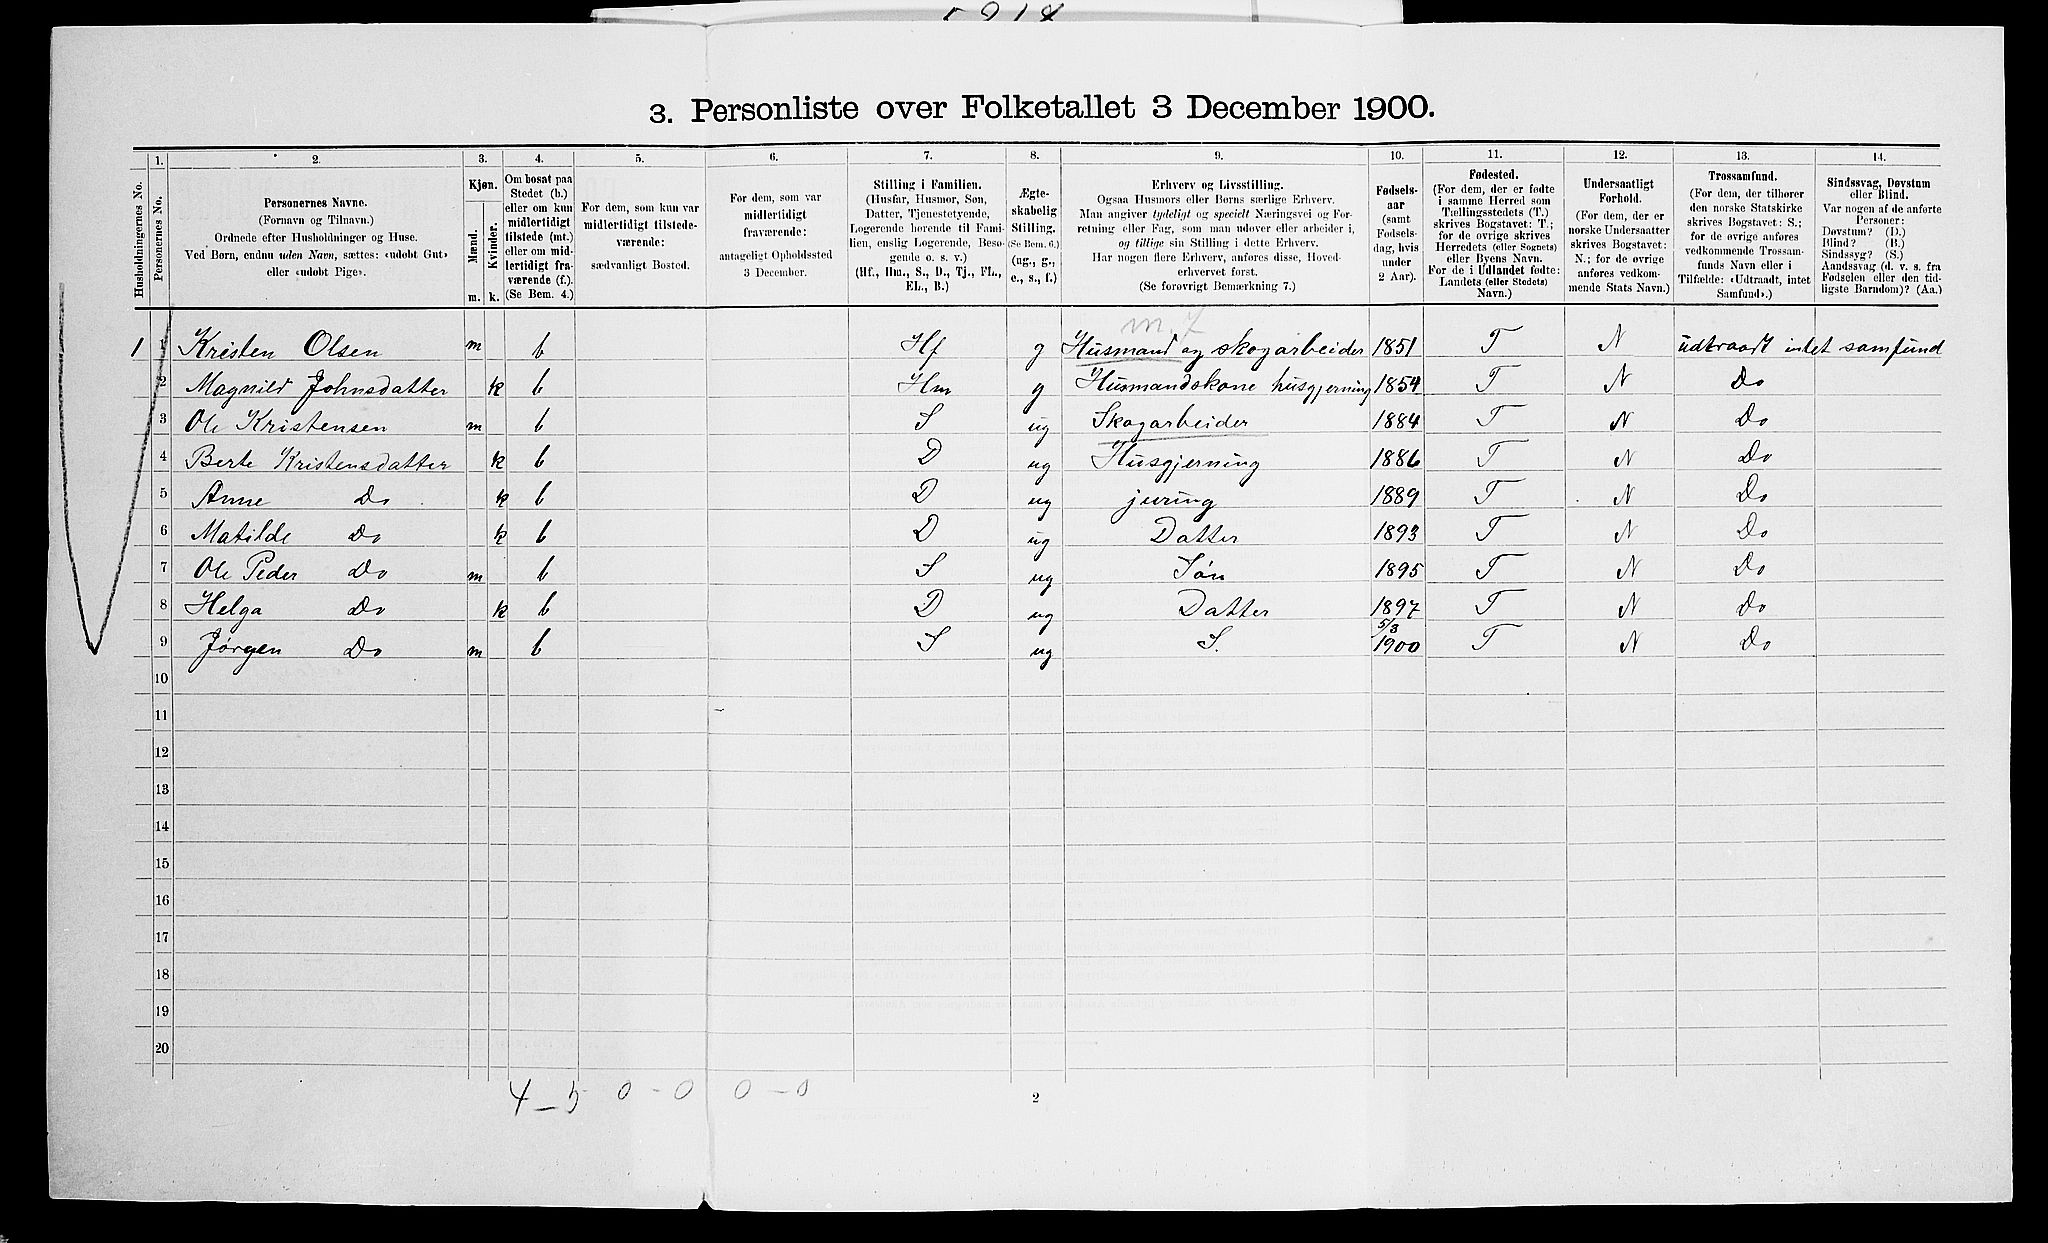 3. Personliste over Folketallet 3 December 1900.
Husholdningernes No.
1.
Personernes No.
2.
Personernes Navne.
(Fornavn og Tilnavn.)
Ordnede efter Husholdninger og Huse.
Ved Børn, endnu uden Navn, sættes: «udobt Gut»
eller «udobt Pige».
3.
Kjøn.
Mænd.
Kvinder.
m. k.
4.
Om bosat paa
Stedet (b.)
eller om kun
midlertidigt
tilstede (mt.)
eller om mid-
lertidigt fra-
værende (f.).
(Se Bem. 4.)
5.
For dem, som kun var
midlertidigt tilstede-
værende:
sædvanligt Bosted.
6.
For dem, som var
midlertidigt
fraværende:
antageligt Opholdssted
3 December.
7.
Stilling i Familien.
(Husfar, Husmor, Søn,
Datter, Tjenestetyende,
Logerende hørende til Fami-
lien, enslig Logerende, Besø-
gende o. s. v.)
(Hf., Hm., S., D., Tj., FL.,
EL., B.)
8.
Ægte-
skabelig
Stilling.
(Se Bem. 6.)
(ug., g.,
e., s., f.)
9.
Erhverv og Livsstilling.
Ogsaa Husmors eller Børns særlige Erhverv.
Man angiver tydeligt og specielt Næringsvei og For-
retning eller Fag, som man udover eller arbeider i,
og tillige sin Stilling i dette Erhverv.
Har nogen flere Erhverv, anføres disse, Hoved-
erhvervet først.
(Se forøvrigt Bemærkning 7.)
10.
Fødsels-
aar
(samt
Fødsels-
dag, hvis
under
2 Aar).
11.
Fødested.
(For dem, der er fødte
i samme Herred som
Tællingsstedets (T.)
skrives Bogstavet: T.;
for de øvrige skrives
Herredets (eller Sognets)
eller Byens Navn.
For de i Udlandet fødte:
Landets (eller Stedets)
Navn.)
12.
Undersaatligt
Forhold.
(For dem, der er
norske Undersaatter
skrives Bogstavet:
N.; for de øvrige
anføres vedkom-
mende Stats Navn.)
13.
Trossamfund.
(For dem, der tilhører
den norske Statskirke
skrives Bogstavet: S.;
for de øvrige anføres
vedkommende Trossam-
funds Navn eller i
Tilfælde: «Udtraadt, intet
Samfund».)
14.
Sindssvag, Døvstum
eller Blind.
Var nogen af de anførte
Personer:
Døvstum? (D.)
Blind? (B.)
Sindssyg? (S.)
Aandssvag (d. v. s. fra
Fødselen eller den tid-
ligste Barndom)? (Aa.)
1 1 Kristen Olsen m b Hf g Husmand og skogarbeider 1851 T N udtraadt intet samfund
2 Magnild Johnsdatter k b Hm g Husmandskone husgjerning 1854 T N Do
3 Ole Kristensen m b S ug Skogarbeider 1884 T N Do
4 Berte Kristensdatter k b D ug Husgjerning 1886 T N Do
5 Anne Do k b D ug juring 1889 T N Do
6 Matilde Do k b D ug Datter 1893 T N Do
7 Ole Peder Do m b S ug Søn 1895 T N Do
8 Helga Do k b D ug Datter 1897 T N Do
9 Jørgen Do m b S ug S. 5/3 1900 T N Do
10
11
12
13
14
15
16
17
18
19
20
4 - 5 0 - 0 0 - 0
2